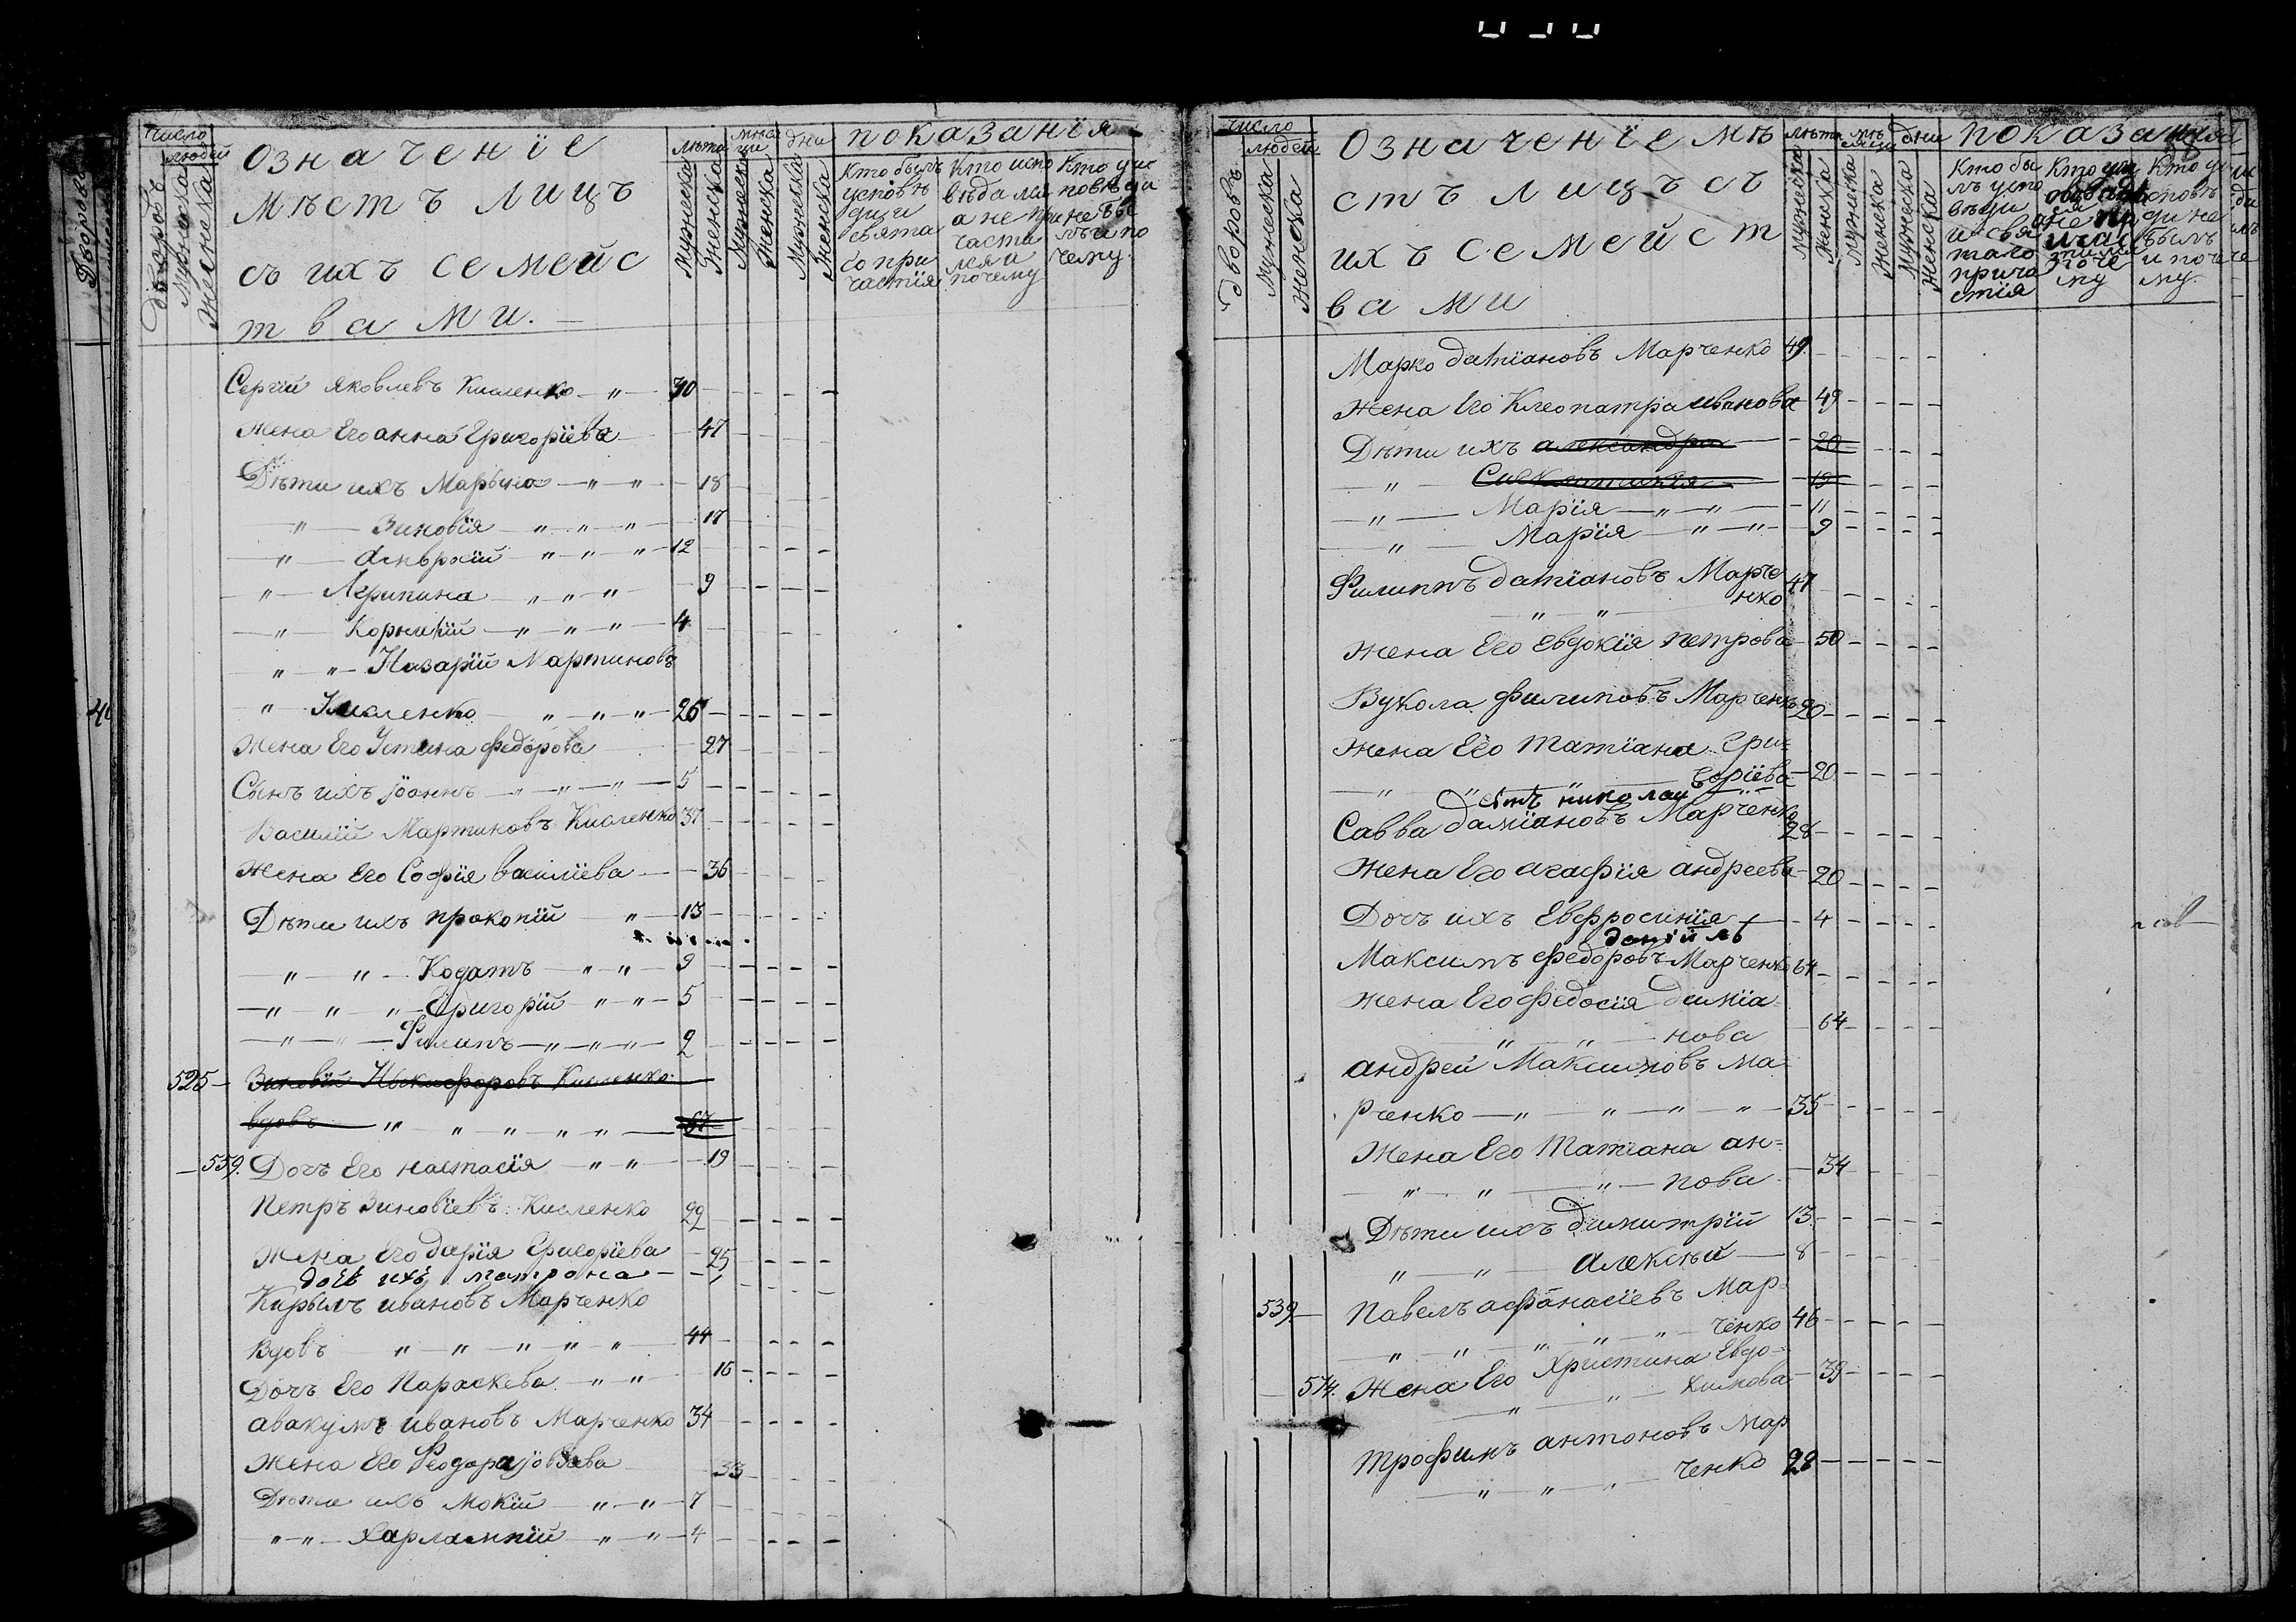 число
людей
дворовъ
Мужеска
Женска
Означеніе
Мѣстъ лицъ
съ ихъ семейс
твами.
лѣта
дни
Мужеска
Женска
Мужеска
Женска
Мужеска
Женска
показанія
Кто былъ Кто испо Кто у ис
усповѣ вѣдался повѣди
ди и а не при не бы
свята части лъ и по
го при лся и чему.
частія почему
Сергій Яковлевъ Кисленко — " — 40
Жена Его анна Григоріева — 47
Дѣти ихъ Марына — " — " — 18
— " — Зиновія — " — " — " — 17
— " — " — " — " — 12
— " — Агрипина — " — " — " — 9
— " — Корнилій — " — " — " — 4
" — " — Назарій Мартиновъ
" — Кисленко — " — " — " — 26
Жена Его Устина федорова — 27
Сынъ ихъ іоаннъ — " — " — " — 5
Василій Мартиновъ Кисленко 37
Жена Его Софія василіева — 36
Дѣти ихъ прокопій — " — 13
— " — " — Кодатъ — " — " — 9
— " — " — " — Григорій — " — " — 5
— " — " — Филипъ — " — " — " — 2
525 — Зиновій Никифоровъ Кисленко
вдовъ — " — " — " — " — " — 67
— 559. Дочъ Его настасія — " — " — 19
Петръ Зиновіевъ Кисленко 22
Жена Его дарія Григоріева — 25
дочь ихъ матрона — 1
Кирылъ ивановъ Марченко
Вдовъ — " — " — " — " — " — 44
Дочъ Его Параскева — " — " — 16
авакумъ ивановъ Марченко 34
Жена Его Феодора іовлева 33
Дѣти ихъ Мокій — " — " — 7
" — " — Харлампій — " — " — 4
число
людей
дворовъ
Мужеска
Женска
Означеніе мѣ
стъ лицъ съ
ихъ семейст
вами
лѣта
мѣсяци
дни
Мужеска
Женска
Мужеска
Женска
Мужеска
Женска
показанія
Кто бы
лъ успо
вѣди
и свя
таго
прича
стія
Марко даміановъ Марченко 49
Жена Его Клеопатра иванова 49
Дѣти ихъ александра — 20
— " — Сиклитикія — 19
— " — Марія — " — " — 11
— " — Марія — " — " — 9
Филиппъ даміановъ Марче 47
— " — " — нко
Жена Его Евдокія петрова — 50
Вукола филиповъ Марченко 20
Жена Его татіана Гри-
— " — " — " — горіева — 20
сынъ николай
Савва даміановъ Марченко 28
Жена Его агафія андреева — 20
Дочъ ихъ Евфросинія — 4
даніилъ
Максимъ федоровъ Марченко 64
Жена Его федосія даміа-
— " — " — нова — 64
андрей Максимовъ Ма-
рченко — " — " — " — " — 35
Жена Его Татіана ан-
— " — " — " — нова — 34
Дѣти ихъ димитрій 13
" — " — алексѣй — 8
539 — Павелъ афанасіевъ Мар-
— " — " — " — " — " — ченко 46
— 574. Жена Его Христина Евдо-
— " — " — кимова — 39
трофимъ антоновъ Мар
— " — " — " — ченко 28